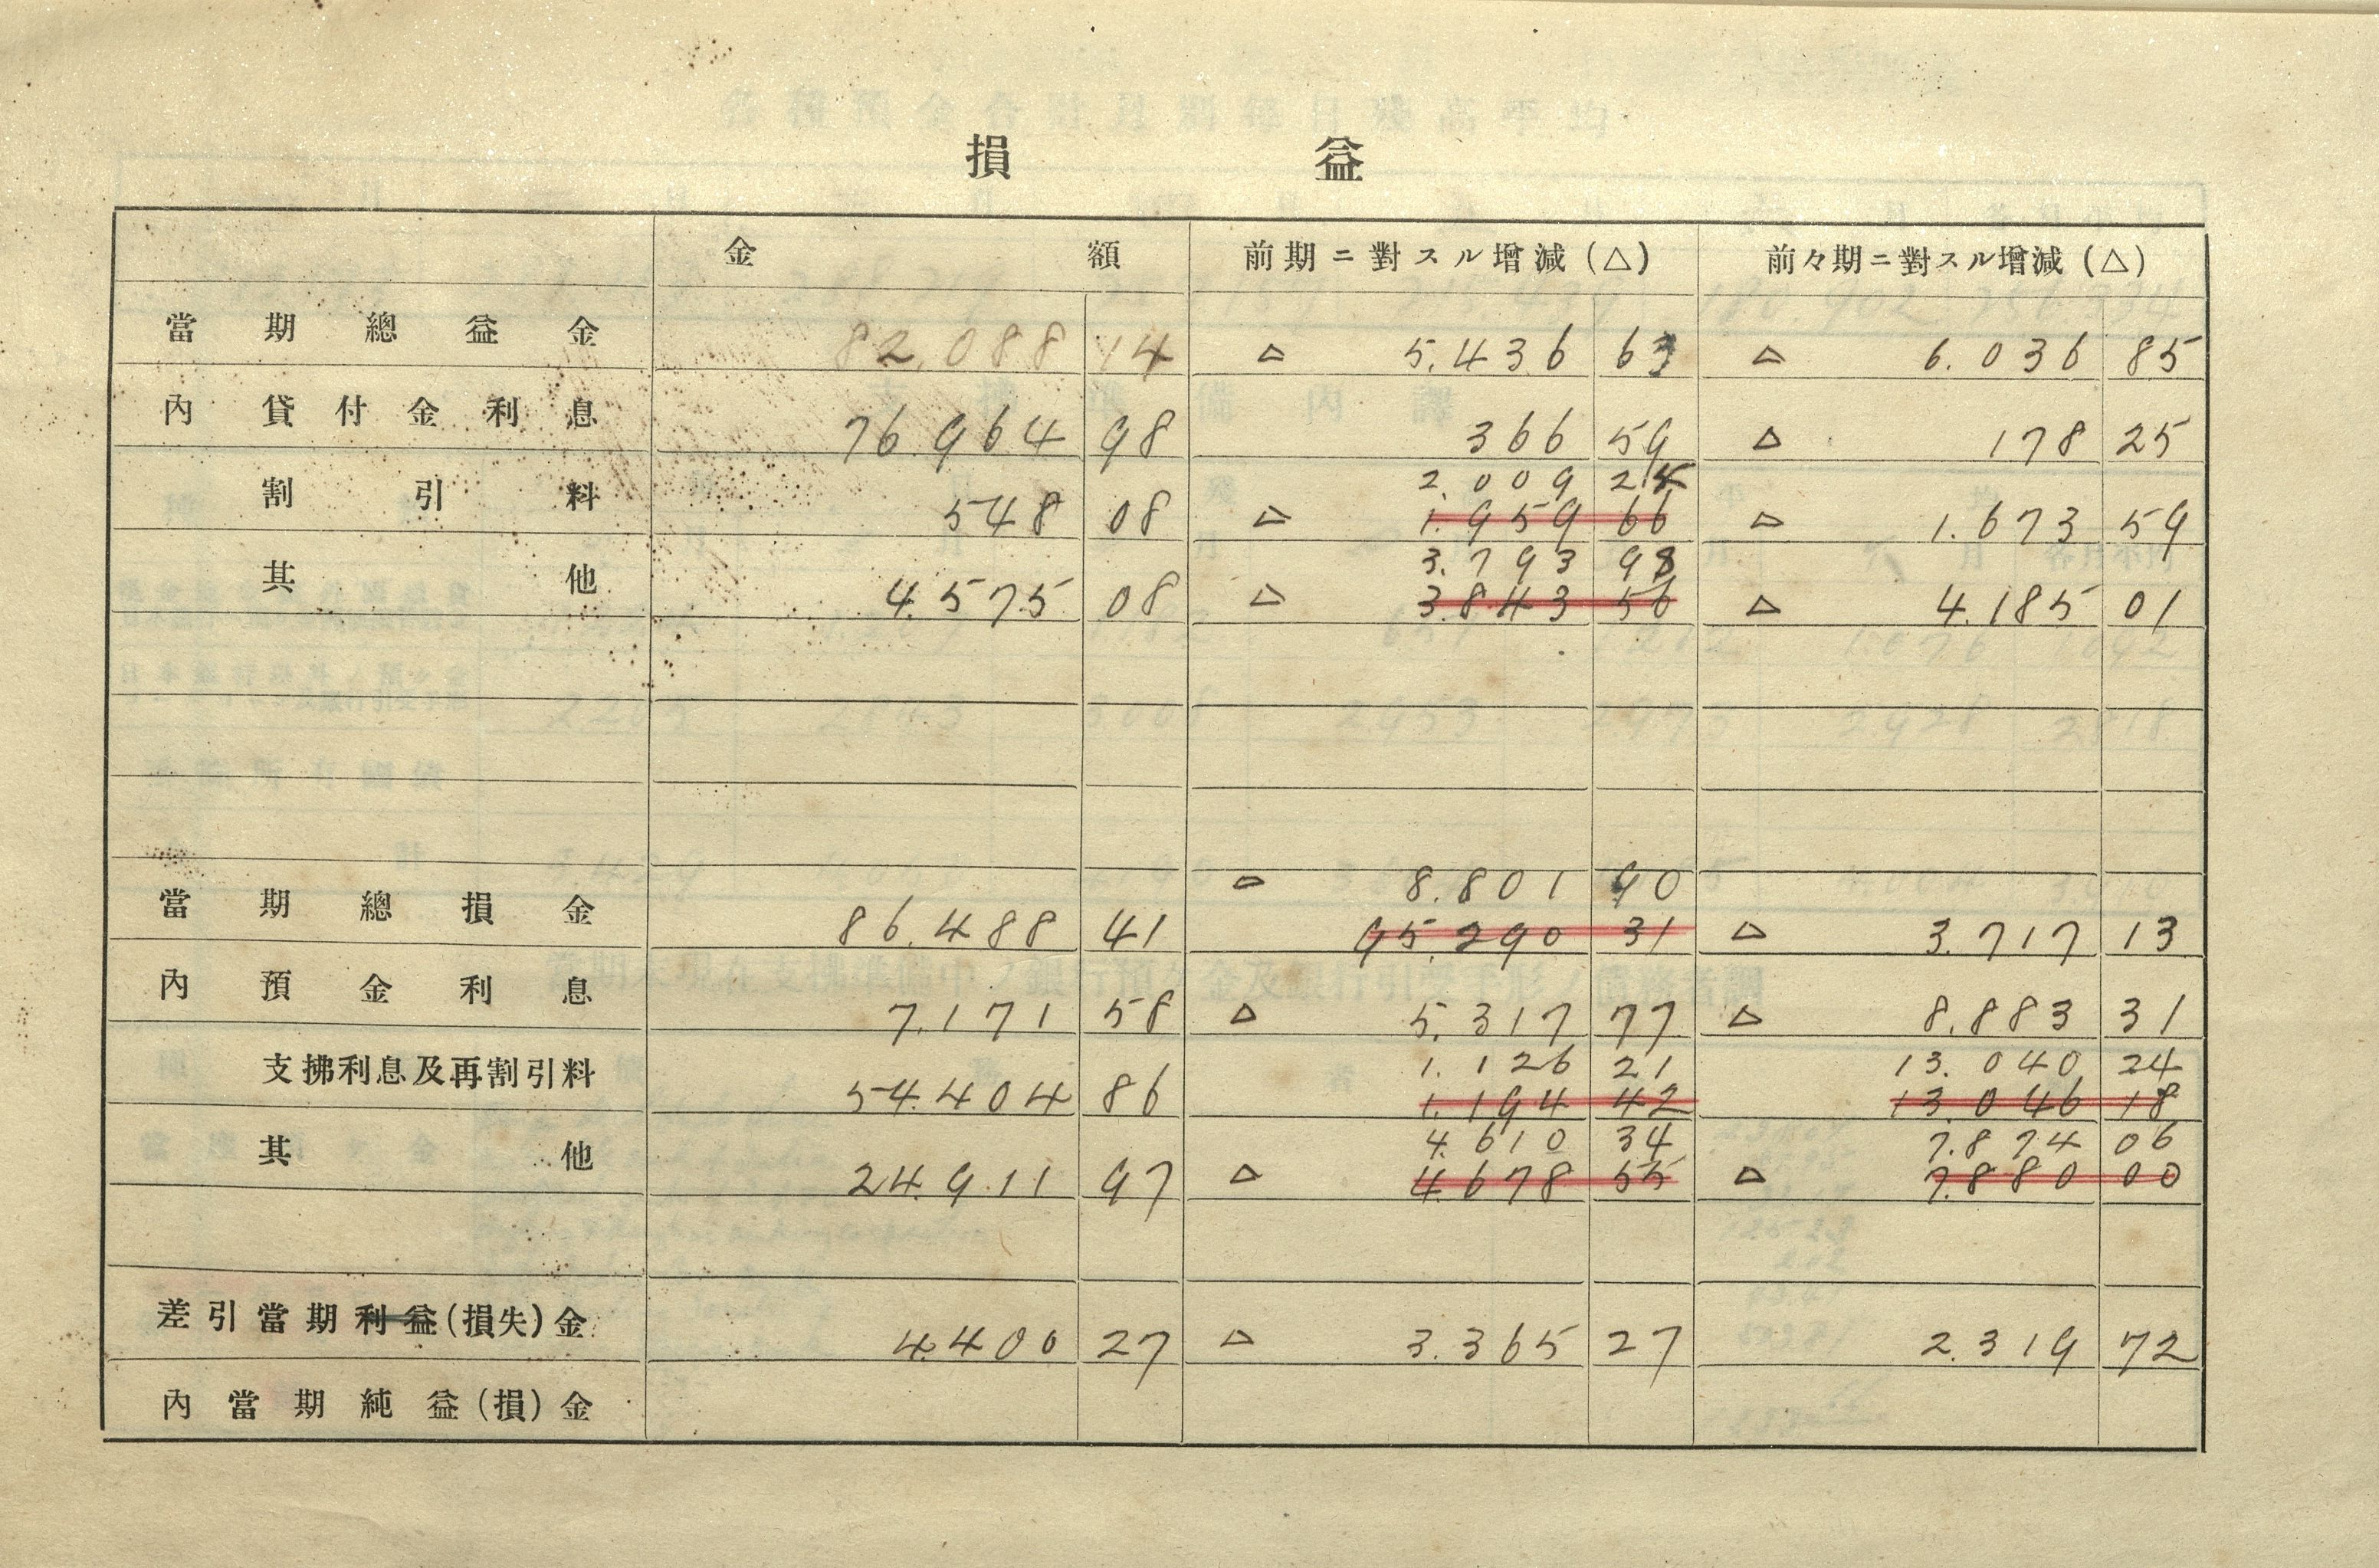 損 益
金 額 前期ニ對スル增減(△) 前々期ニ對スル增減(△)
當期總益金 82,088 14 △ 5.436 63 △ 6.036 85
內 貸付金利息 76.964 98 366 59 △ 178 25
2.009 24
割引料 548 08 △ 1.959 66 △ 1.673 59
3.793 98
其他 4.575 08 △ 3.843 56 △ 4.185 01
△ 8.801 90
當期總損金 86.488 41 95.290 31 △ 3.717 13
內 預金利息 7.171 58 △ 5.317 77 △ 8.883 31
1.126 21 13.040 24
支拂利息及再割引料 54.404 86 1.194 42 13.046 18
4.610 34 7.874 06
其他 24.911 97 △ 4.678 55 △ 7.880 00
差引當期利益(損失)金 4.400 27 △ 3.365 27 2.319 72
內當期純益(損)金